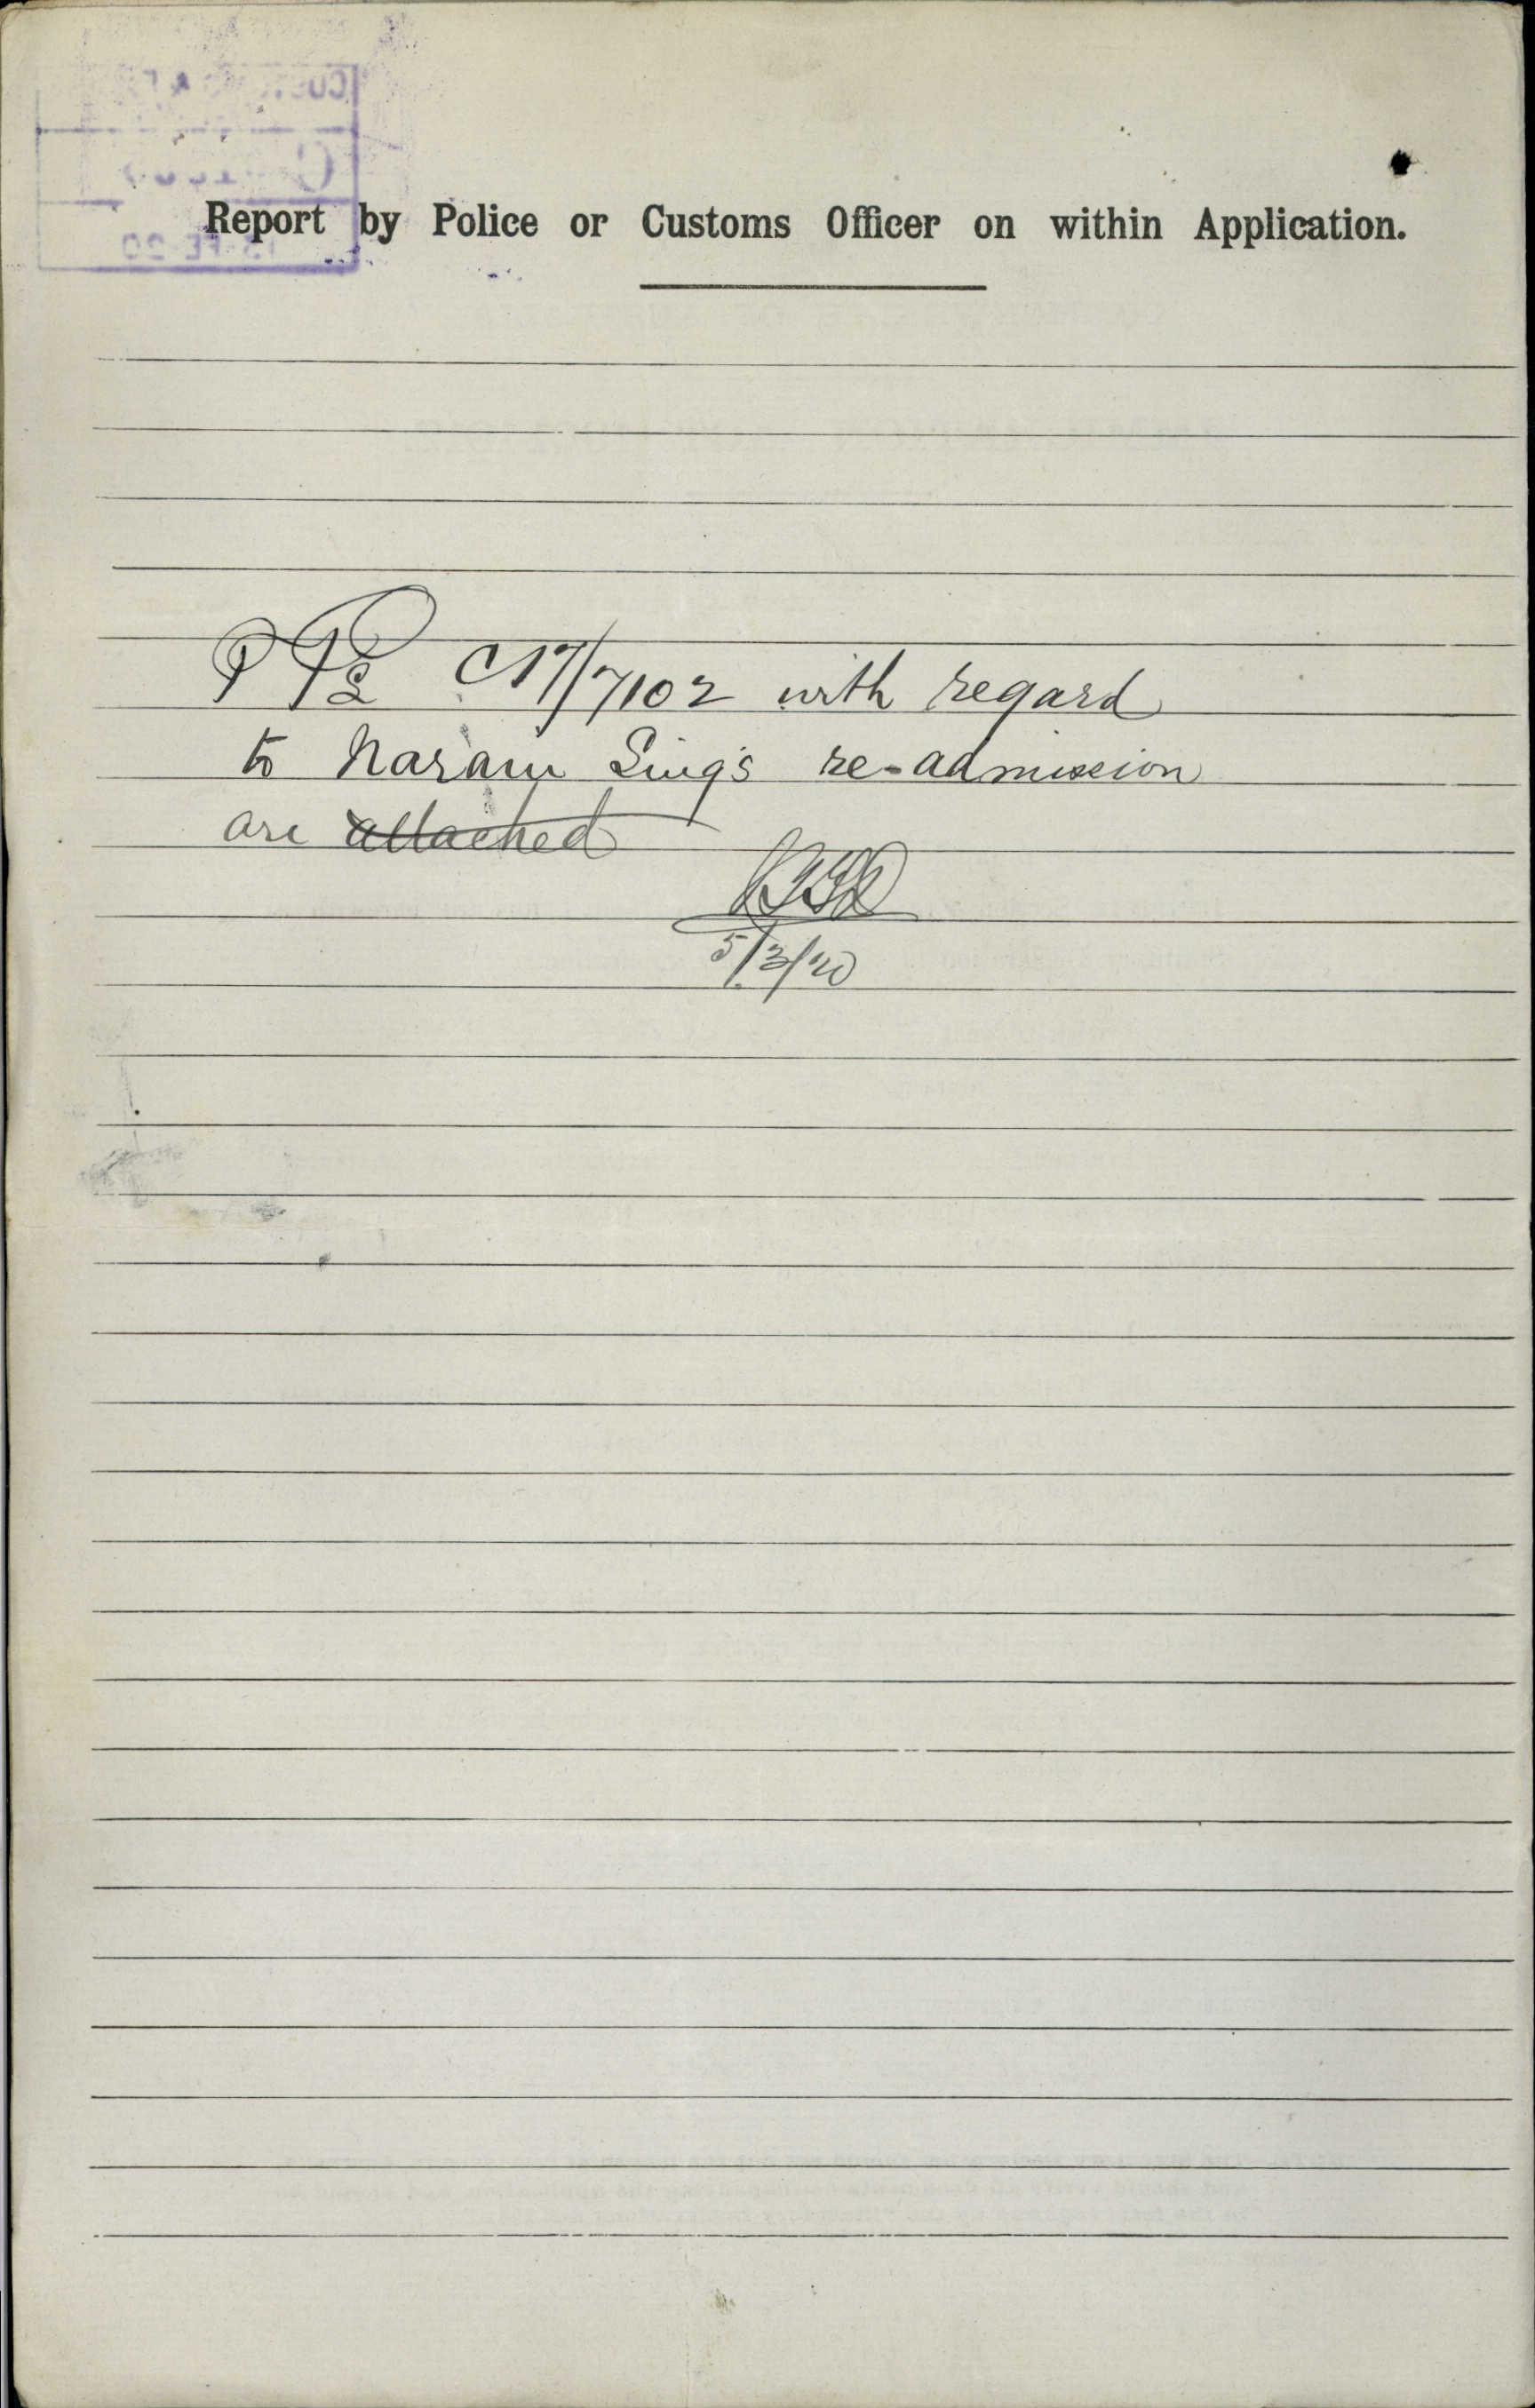 Report by Police or Customs Officer on within Application.
C17/7102 with regard
to Narain Sing's re-admission
are attached
5/3/20